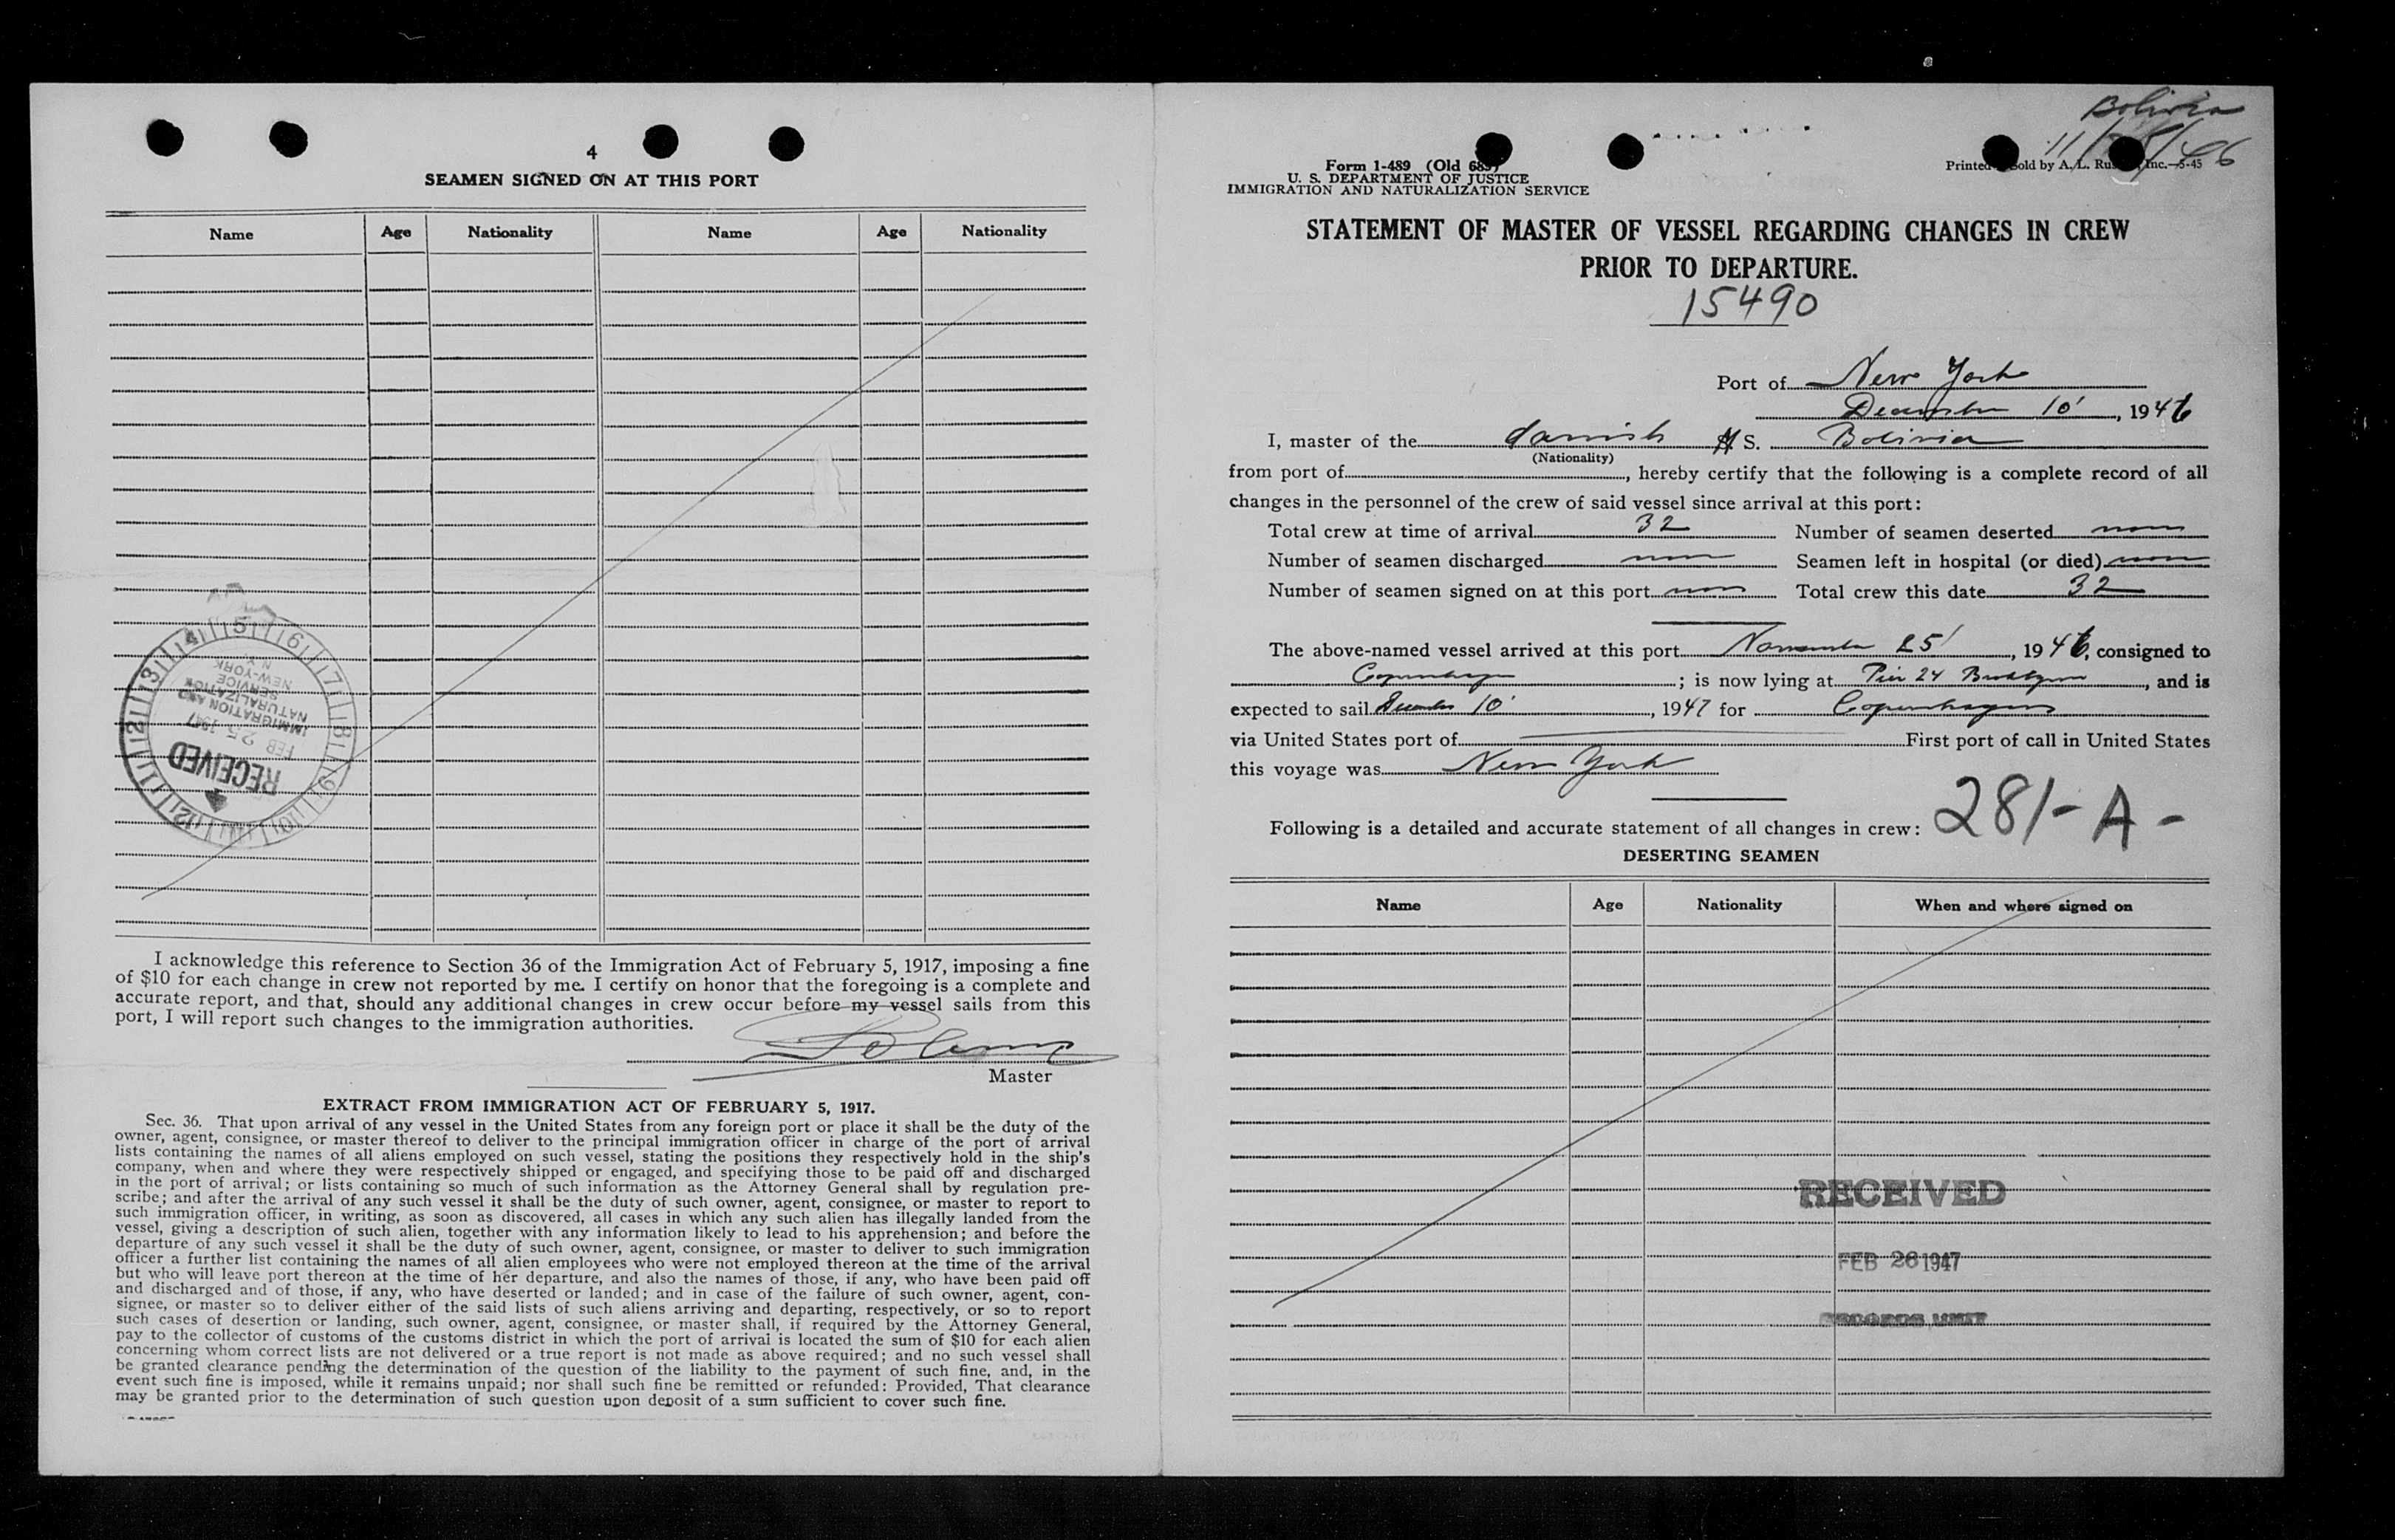 4
SEAMEN SIGNED ON AT THIS PORT
Name Age Nationality Name Age Nationality
5 6 7 8 9 10 11 12 1 2 3 4
RECEIVED
FEB 25 1947
IMMIGRATION AND
NATURALIZATION
SERVICE
NEW-YORK
N. Y.
I acknowledge this reference to Section 36 of the Immigration Act of February 5, 1917, imposing a fine
of $10 for each change in crew not reported by me. I certify on honor that the foregoing is a complete and
accurate report, and that, should any additional changes in crew occur before my vessel sails from this
port, I will report such changes to the immigration authorities.
Master
EXTRACT FROM IMMIGRATION ACT OF FEBRUARY 5, 1917.
Sec. 36. That upon arrival of any vessel in the United States from any foreign port or place it shall be the duty of the
owner, agent, consignee, or master thereof to deliver to the principal immigration officer in charge of the port of arrival
lists containing the names of all aliens employed on such vessel, stating the positions they respectively hold in the ship's
company, when and where they were respectively shipped or engaged, and specifying those to be paid off and discharged
in the port of arrival; or lists containing so much of such information as the Attorney General shall by regulation pre-
scribe; and after the arrival of any such vessel it shall be the duty of such owner, agent, consignee, or master to report to
such immigration officer, in writing, as soon as discovered, all cases in which any such alien has illegally landed from the
vessel, giving a description of such alien, together with any information likely to lead to his apprehension; and before the
departure of any such vessel it shall be the duty of such owner, agent, consignee, or master to deliver to such immigration
officer a further list containing the names of all alien employees who were not employed thereon at the time of the arrival
but who will leave port thereon at the time of her departure, and also the names of those, if any, who have been paid off
and discharged and of those, if any, who have deserted or landed; and in case of the failure of such owner, agent, con-
signee, or master so to deliver either of the said lists of such aliens arriving and departing, respectively, or so to report
such cases of desertion or landing, such owner, agent, consignee, or master shall, if required by the Attorney General,
pay to the collector of customs of the customs district in which the port of arrival is located the sum of $10 for each alien
concerning whom correct lists are not delivered or a true report is not made as above required; and no such vessel shall
be granted clearance pending the determination of the question of the liability to the payment of such fine, and, in the
event such fine is imposed, while it remains unpaid; nor shall such fine be remitted or refunded: Provided, That clearance
may be granted prior to the determination of such question upon deposit of a sum sufficient to cover such fine.
Bolivia
11/25/46
Form 1-489 (Old 689)
U. S. DEPARTMENT OF JUSTICE
IMMIGRATION AND NATURALIZATION SERVICE
Printed Sold by A. L. Inc.—5-45
STATEMENT OF MASTER OF VESSEL REGARDING CHANGES IN CREW
PRIOR TO DEPARTURE.
15490
Port of New York
December 10', 1946
I, master of the danish S. Bolivia
(Nationality)
from port of , hereby certify that the following is a complete record of all
changes in the personnel of the crew of said vessel since arrival at this port:
Total crew at time of arrival 32 Number of seamen deserted none
Number of seamen discharged none Seamen left in hospital (or died) none
Number of seamen signed on at this port none Total crew this date 32
The above-named vessel arrived at this port November 25', 1946, consigned to
Copenhagen ; is now lying at Pier 24 Brooklyn , and is
expected to sail December 10', 1947 for Copenhagen
via United States port of First port of call in United States
this voyage was New York
Following is a detailed and accurate statement of all changes in crew: 281-A-
DESERTING SEAMEN
Name Age Nationality When and where signed on
RECEIVED
FEB 26 1947
RECORDS UNIT